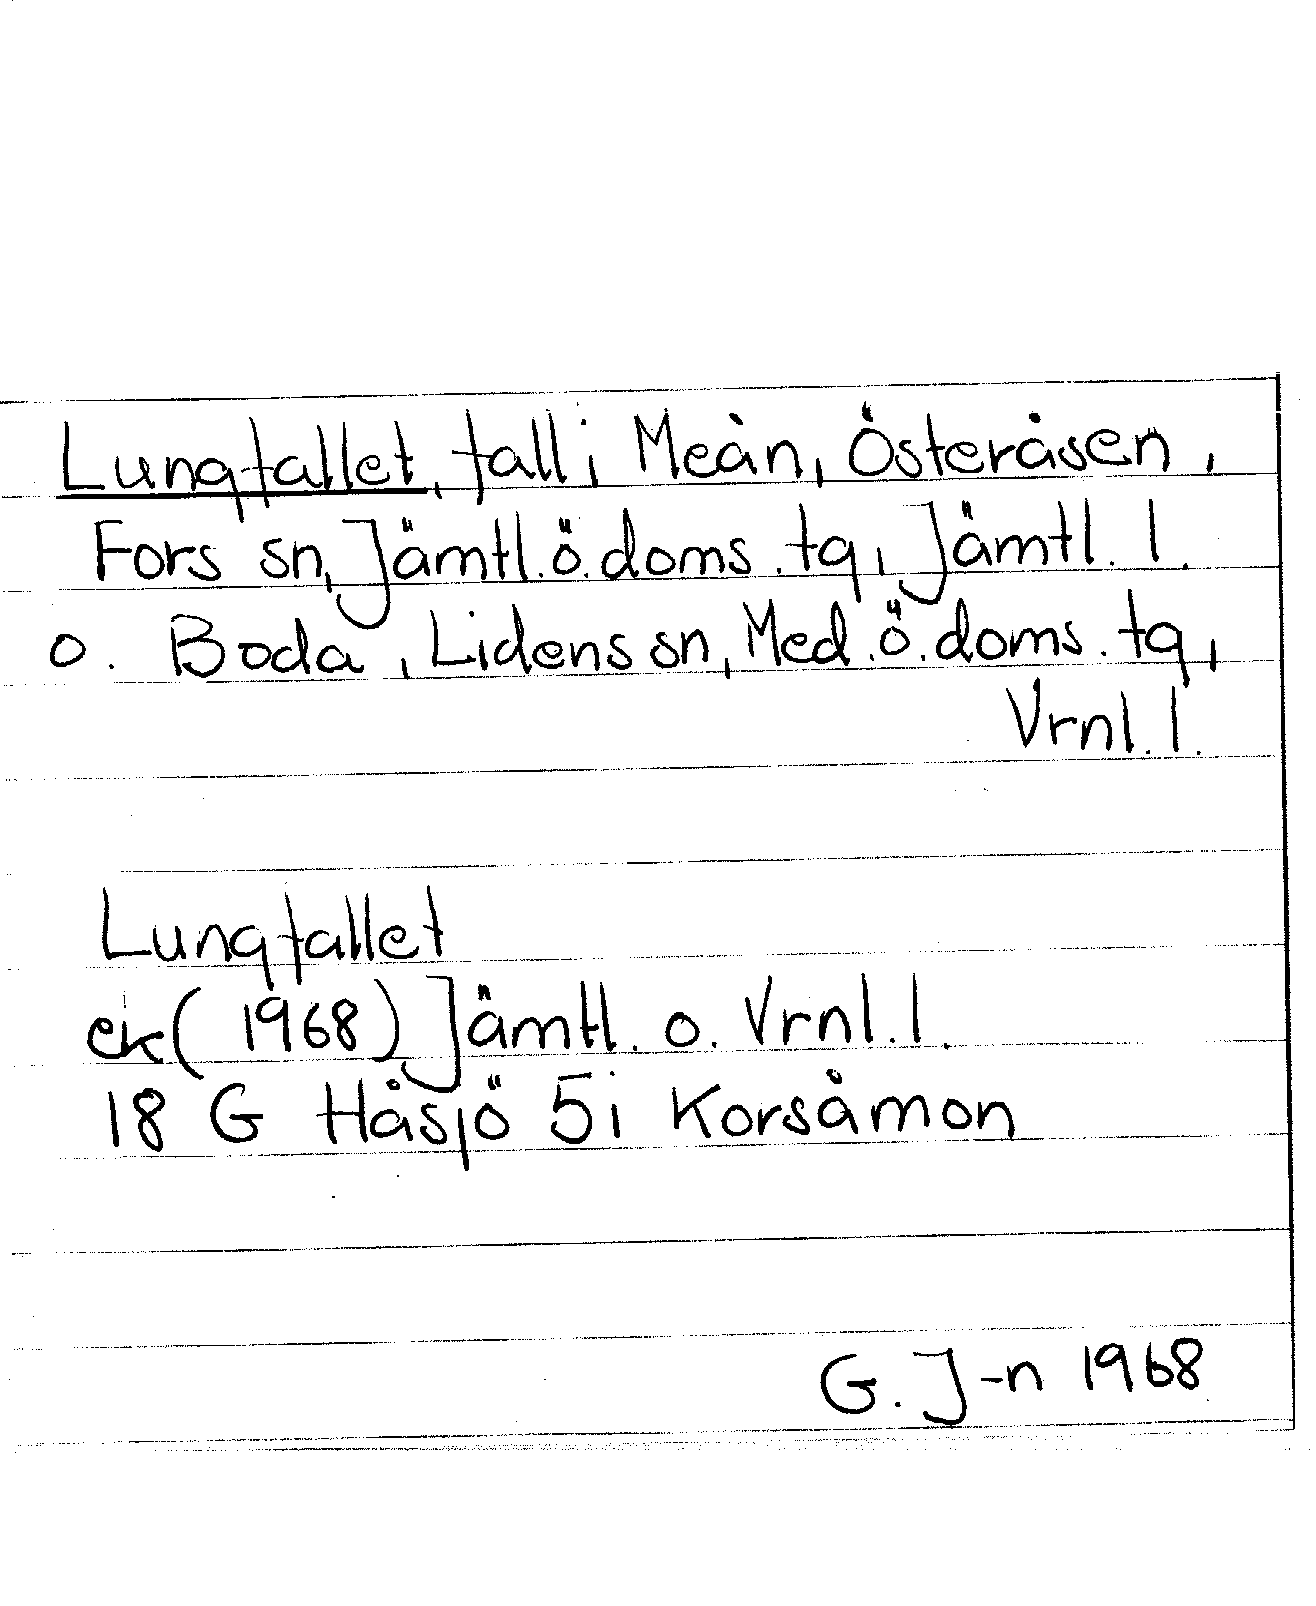 Lungfallet, fall i Meån, Österåsen,
Fors sn, Jämtl. ö. doms. tg, Jämtl. l.
o. Boda, Lidens sn, Med. ö. doms. tg,
Vrnl. l.
Lungfallet
ek (1968) Jämtl. o. Vrnl. l.
18 G Håsjö 5i Korsåmon
G. J-n 1968